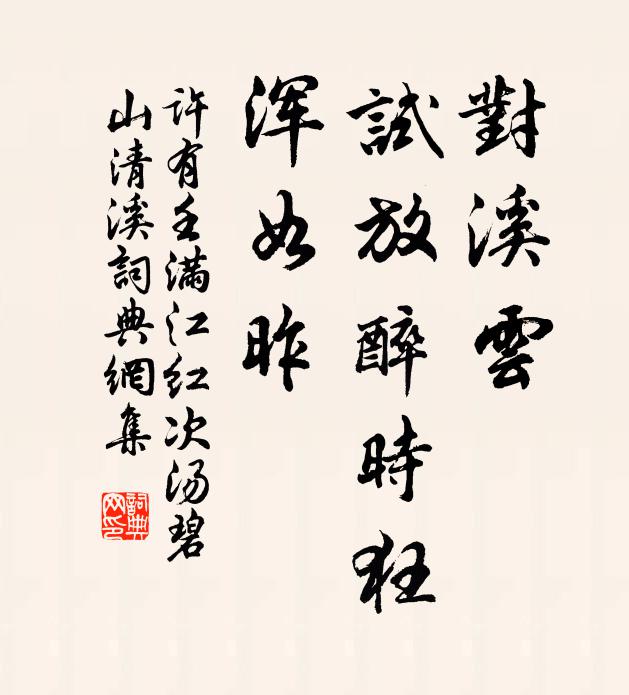 對溪雲
試放醉時狂
渾如昨
许有壬满江红次汤碧
山清溪詞典網集
詞典
网印